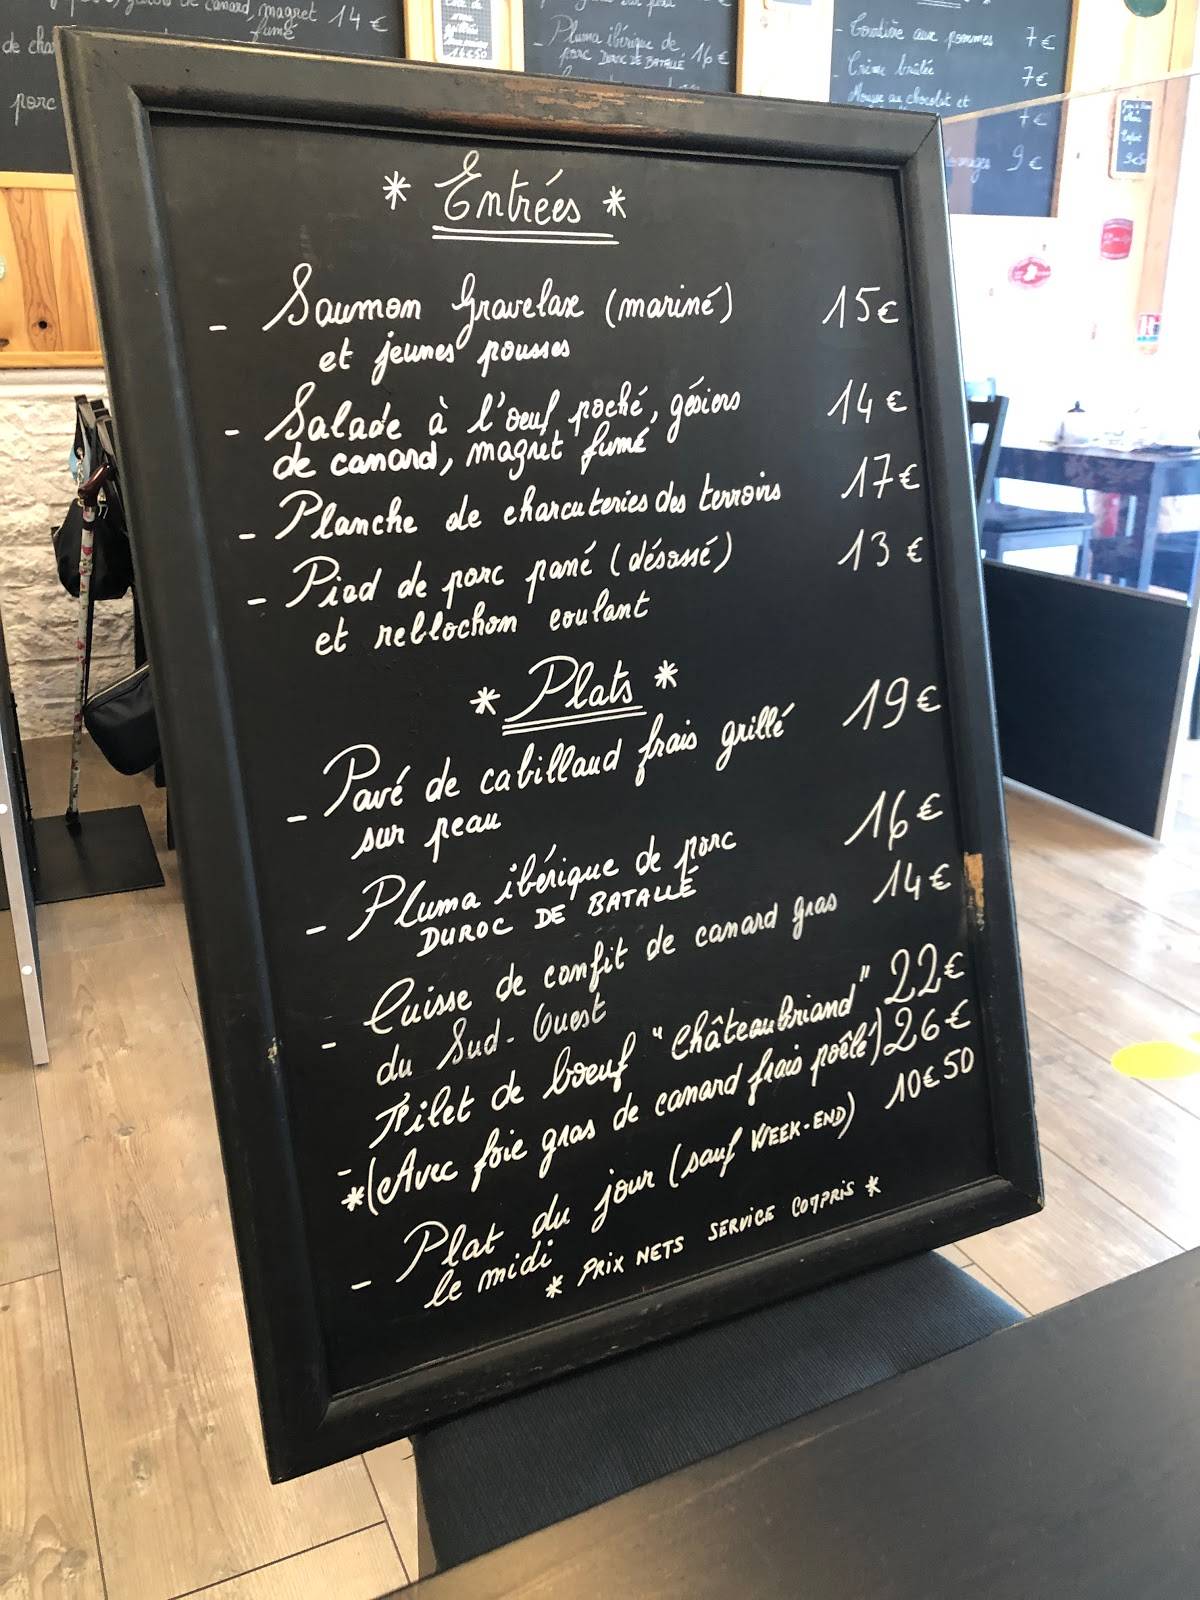 * Entrées *
- Saumon Gravelax (mariné) 15€
et jeunes pousses
- Salade à l'oeuf poché, gésiers 14€
de canard, magret fumé
- Planche de charcuteries des terroirs 17€
- Pied de porc pané (désossé) 13€
et reblochon coulant
* Plats *
- Pavé de cabillaud frais grillé 19€
sur peau
- Pluma ibérique de porc 16€
DUROC DE BATALLÉ
- Cuisse de confit de canard gras 14€
du Sud-Ouest
- Filet de boeuf "Châteaubriand" 22€
*(Avec foie gras de canard frais poêlé) 26€
- Plat du jour (sauf WEEK-END) 10€50
le midi
* PRIX NETS SERVICE COMPRIS *
de canard, magret 14€
fumé
porc
- Pluma ibérique de
porc DUROC DE BATALLÉ 16€
- Tourtière aux pommes 7€
- Crème brûlée 7€
Mousse au chocolat et
7€
9€